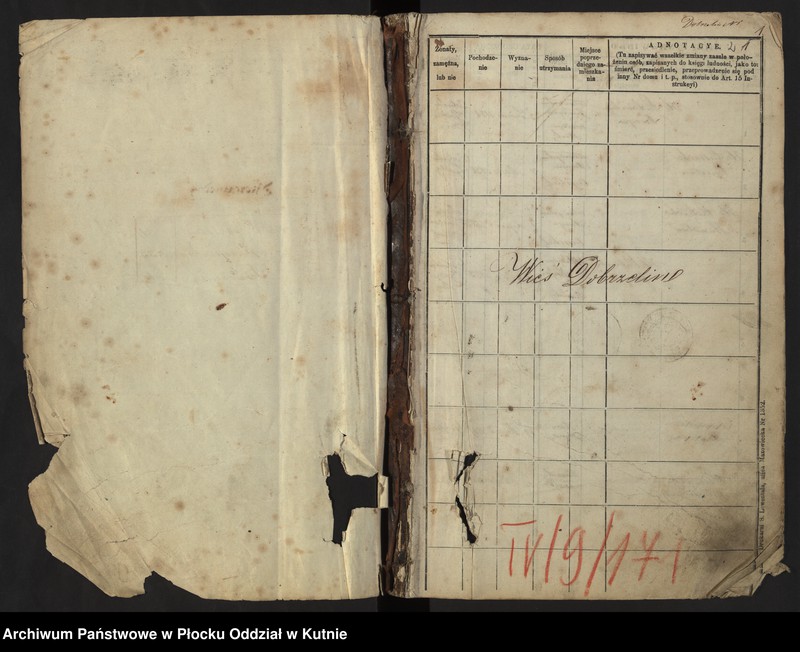 Żonaty,
zamężna,
lub nie
Pochodze-
nie
Wyzna-
nie
Sposób
utrzymania
Miejsce
poprze-
dniego za-
mieszka-
nia
ADNOTACYE.
(Tu zapisywać wszelkie zmiany zaszłe w poło-
żeniu osób, zapisanych do księgi ludności, jako to:
śmierć, przesiedlenie, przeprowadzenie się pod
inny Nr domu i t. p., stosownie do Art. 15 In-
strukcyi)
Wieś Dobrzelin
IV/9/171
Archiwum Państwowe w Płocku Oddział w Kutnie